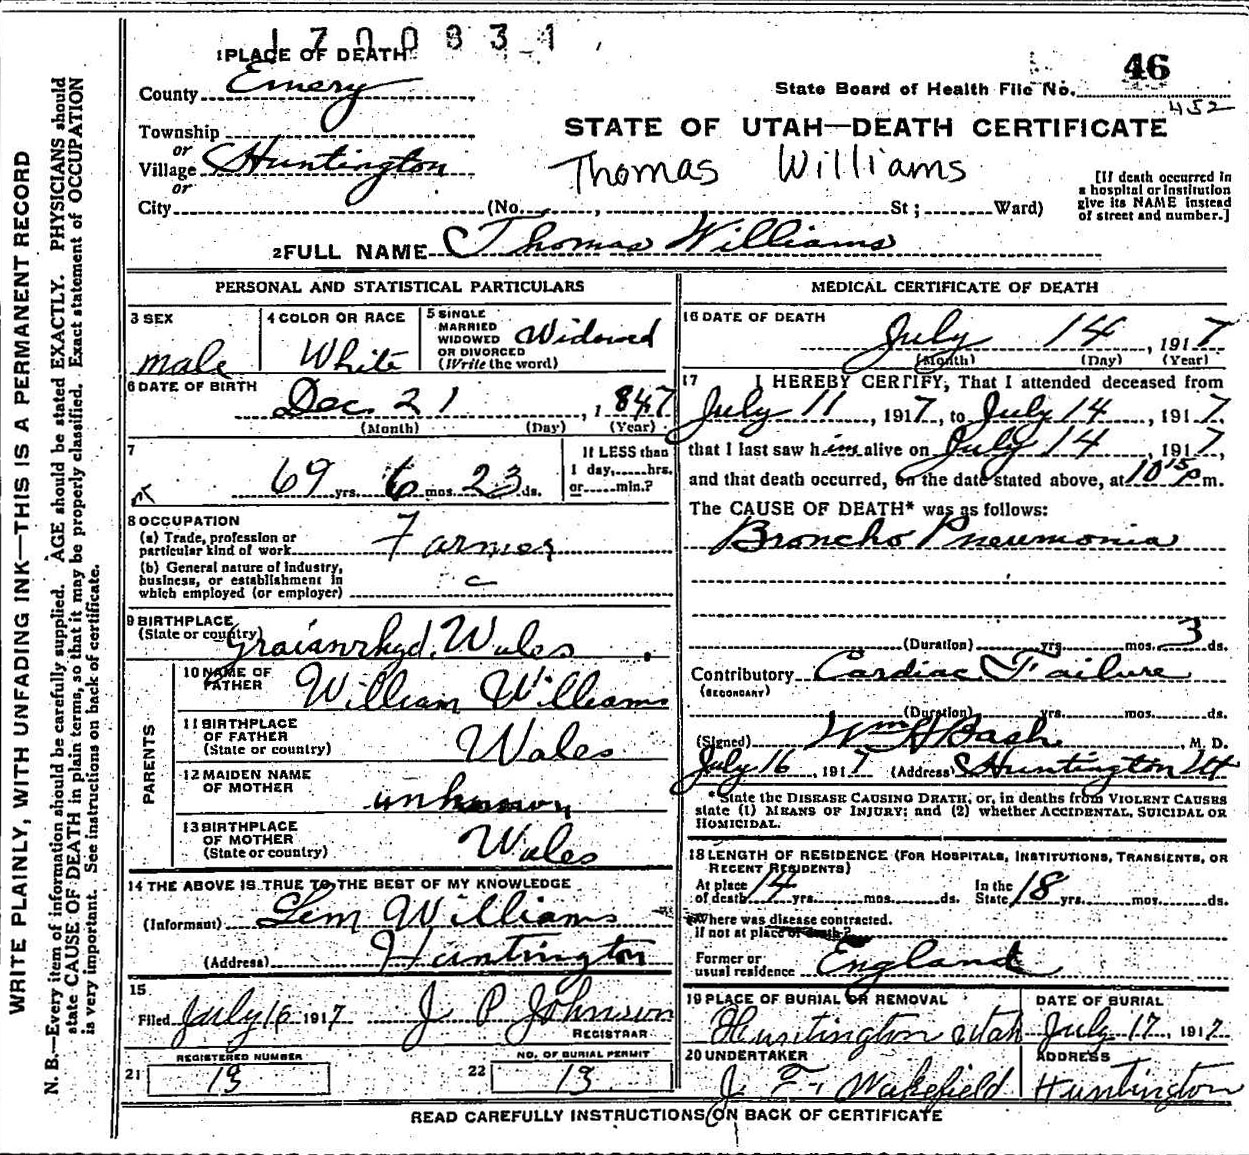 1700831
1 PLACE OF DEATH
County Emery
State Board of Health File No. 46
452
Township
or
Village Huntington
or
City (No. , St; Ward)
STATE OF UTAH—DEATH CERTIFICATE
Thomas Williams
[If death occurred in
a hospital or institution
give its NAME instead
of street and number.]
2 FULL NAME Thomas Williams
PERSONAL AND STATISTICAL PARTICULARS
3 SEX
male
4 COLOR OR RACE
White
5 SINGLE
MARRIED
WIDOWED
OR DIVORCED
(Write the word)
Widowed
6 DATE OF BIRTH
Dec 21, 1847
(Month) (Day) (Year)
7
69 yrs. 6 mos. 23 ds.
If LESS than
1 day, hrs.
or min.?
8 OCCUPATION
(a) Trade, profession or
particular kind of work Farmer
(b) General nature of industry,
business, or establishment in
which employed (or employer)
9 BIRTHPLACE
(State or country)
Graianrhyd. Wales
PARENTS
10 NAME OF
FATHER
William Williams
11 BIRTHPLACE
OF FATHER
(State or country)
Wales
12 MAIDEN NAME
OF MOTHER
unknown
13 BIRTHPLACE
OF MOTHER
(State or country)
Wales
14 THE ABOVE IS TRUE TO THE BEST OF MY KNOWLEDGE
(Informant) Lem Williams
(Address) Huntington
15
Filed July 16 1917 J P Johnson
REGISTRAR
REGISTERED NUMBER
21 13
NO. OF BURIAL PERMIT
22 13
MEDICAL CERTIFICATE OF DEATH
16 DATE OF DEATH
July 14, 1917
(Month) (Day) (Year)
17 I HEREBY CERTIFY, That I attended deceased from
July 11, 1917, to July 14, 1917,
that I last saw him alive on July 14, 1917,
and that death occurred, on the date stated above, at 10 15 p m.
The CAUSE OF DEATH* was as follows:
Broncho Pneumonia
(Duration) yrs. mos. 3 ds.
Contributory Cardiac Failure
(SECONDARY)
(Duration) yrs. mos. ds.
(Signed) Wm H Bash, M. D.
July 16, 1917 (Address) Huntington Ut
*State the DISEASE CAUSING DEATH, or, in deaths from VIOLENT CAUSES
state (1) MEANS OF INJURY; and (2) whether ACCIDENTAL, SUICIDAL OR
HOMICIDAL.
18 LENGTH OF RESIDENCE (FOR HOSPITALS, INSTITUTIONS, TRANSIENTS, OR
RECENT RESIDENTS)
At place
of death 14 yrs. mos. ds.
In the
State 18 yrs. mos. ds.
Where was disease contracted.
If not at place of death?
Former or
usual residence England
19 PLACE OF BURIAL OR REMOVAL
Huntington Utah
DATE OF BURIAL
July 17, 1917
20 UNDERTAKER
J. F. Wakefield
ADDRESS
Huntington
READ CAREFULLY INSTRUCTIONS ON BACK OF CERTIFICATE
WRITE PLAINLY, WITH UNFADING INK—THIS IS A PERMANENT RECORD
N. B.—Every item of information should be carefully supplied. AGE should be stated EXACTLY. PHYSICIANS should
state CAUSE OF DEATH in plain terms, so that it may be properly classified. Exact statement of OCCUPATION
is very important. See instructions on back of certificate.